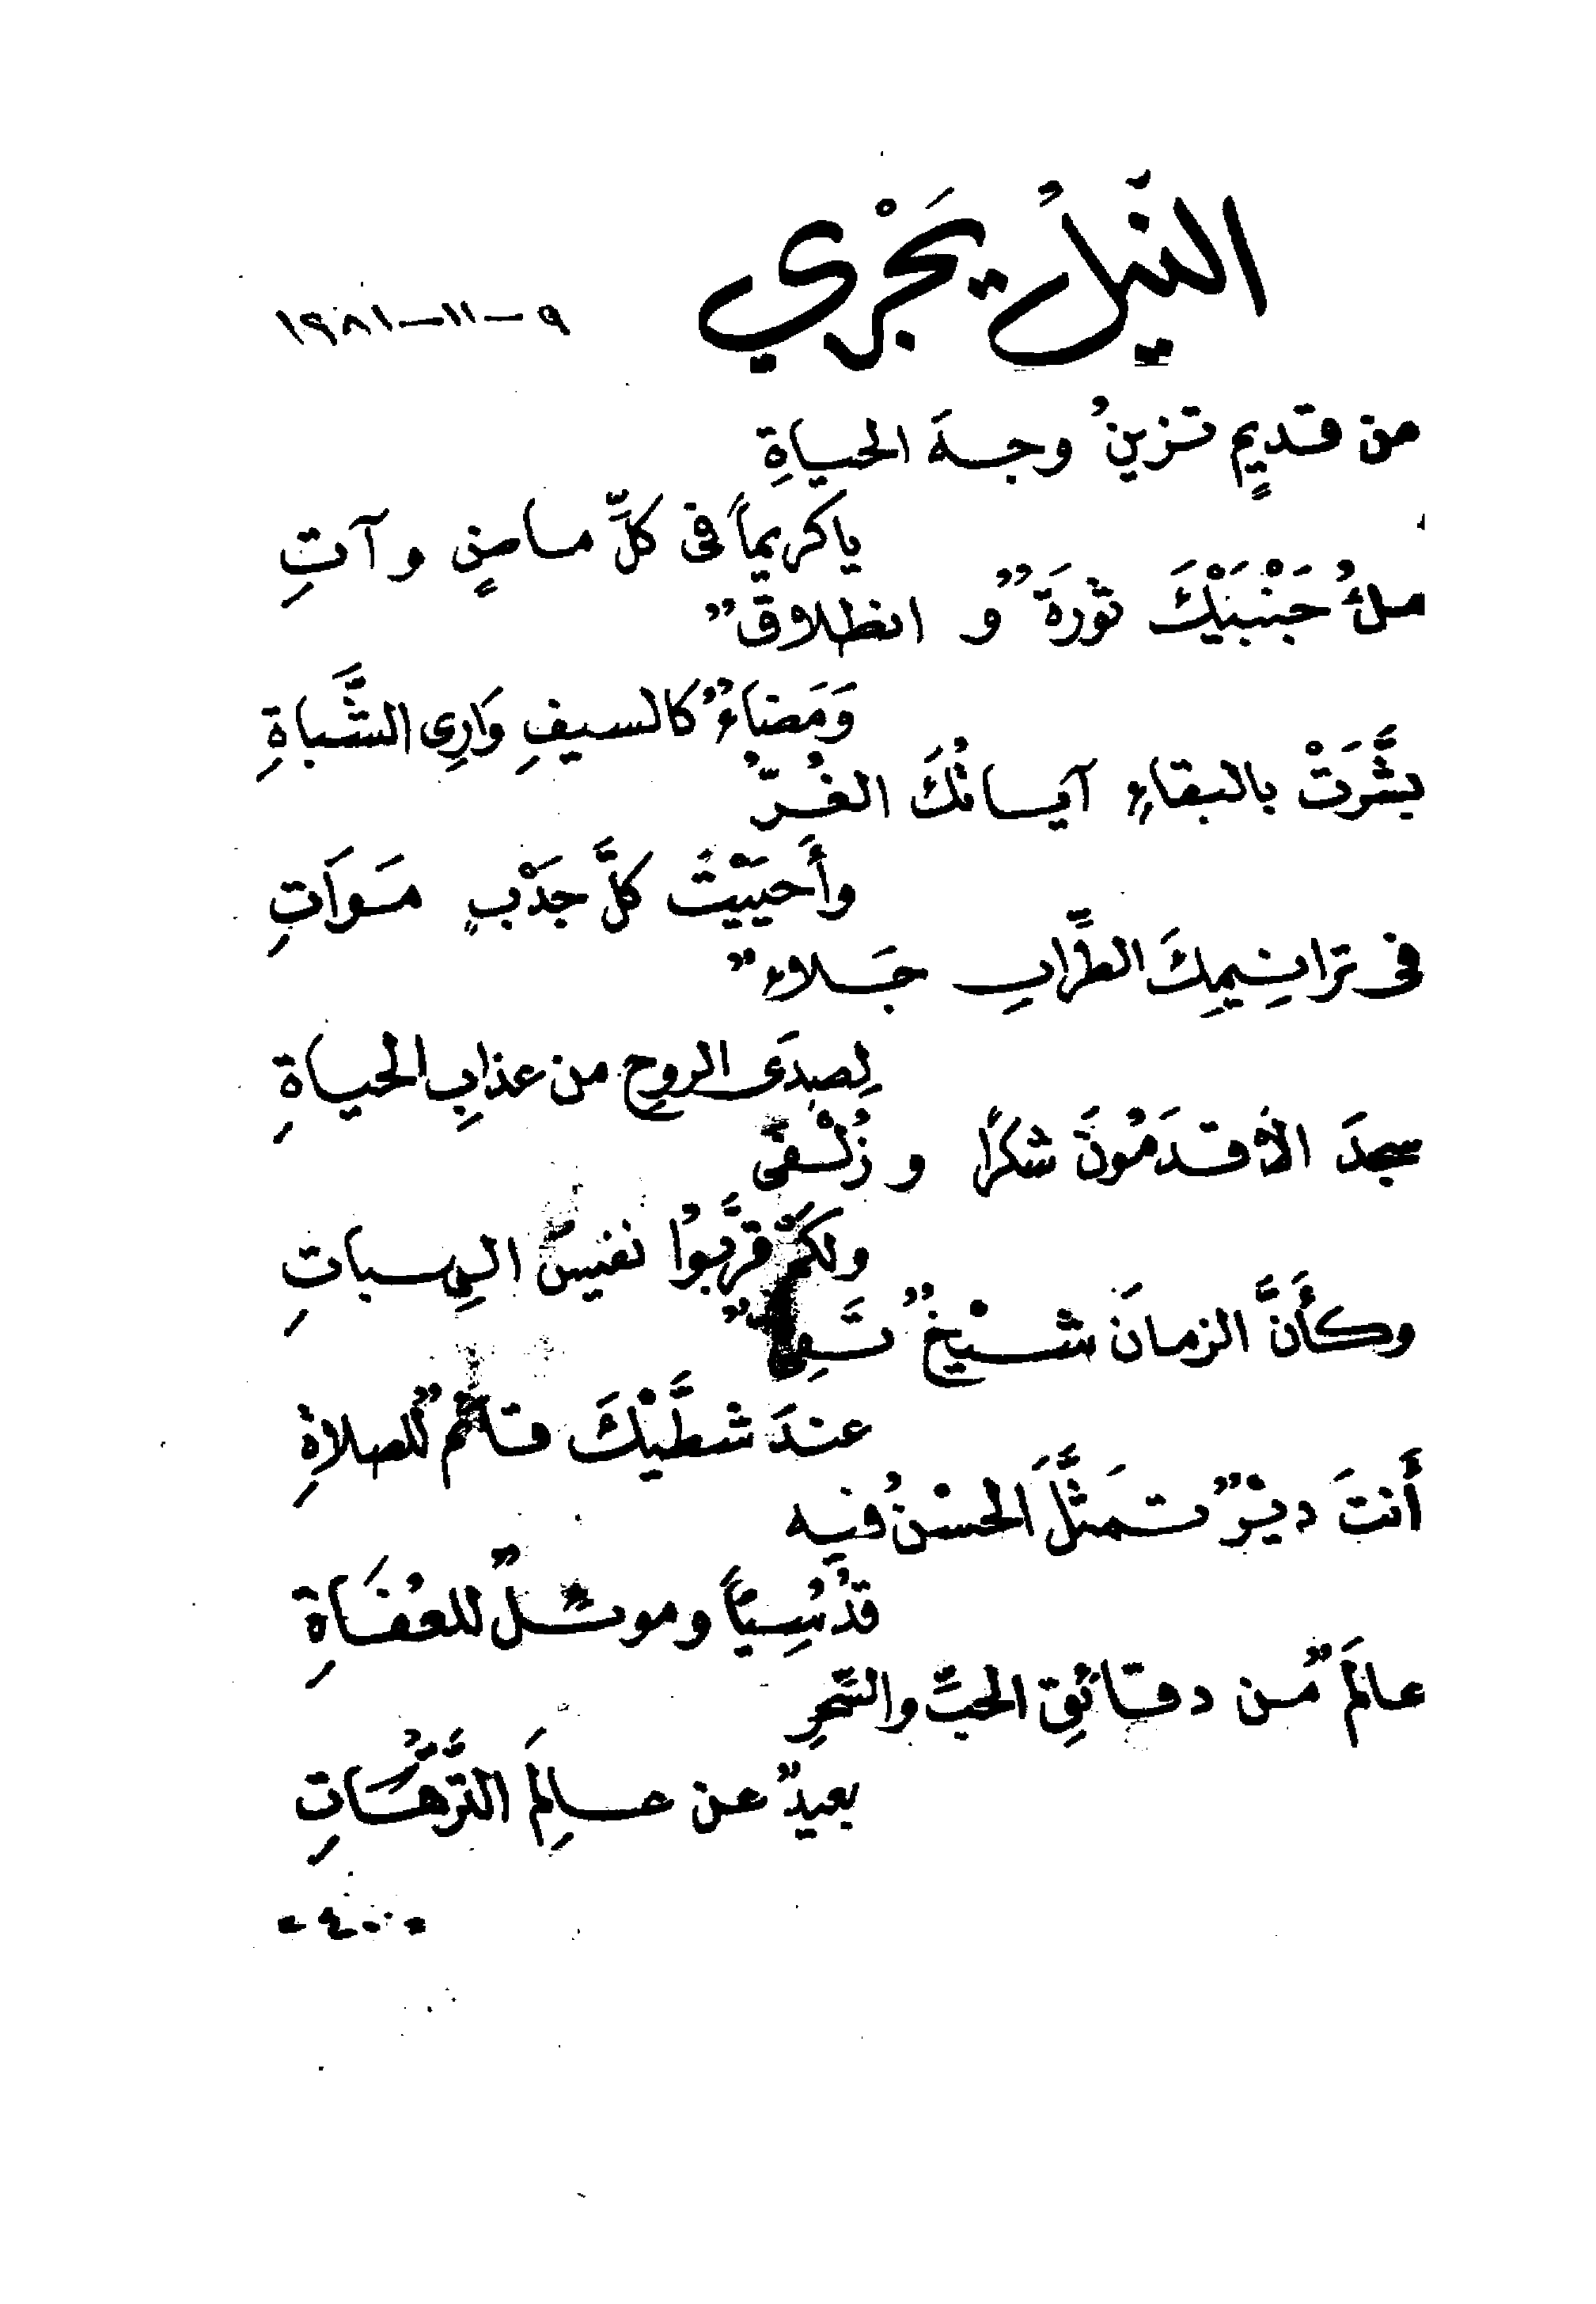 النِّيلُ يَجْري
٩-١١-١٩٨١
من قديمٍ تزينُ وجهَ الحياةِ
يا كريماً فى كلِّ ماضٍ وآتِ
ملءُ جَنْبَيْكَ ثورَةٌ و انطلاقٌ
وَمَضَاءٌ كالسيفِ وَارِى الشَّباةِ
بشَّرَتْ بالبقاءِ آياتُكَ الغُرُّ
وأَحيَيْتَ كلَّ جَدْبٍ مَوَاتِ
فى ترانِيمِكَ الطِّرابِ جَلاءٌ
لِصدَى الروحِ من عذابِ الحياةِ
سجدَ الأقدَمُونَ شكرًا و زُلْفَى
ولكم قرَّبُوا نفيسَ الهِباتِ
وكأَنَّ الزمانَ شيْخٌ
عندَ شطَّيْكَ قائمٌ للصلاةِ
أَنتَ ديْرٌ تمَثَّلَ الحسْنُ فيه
قدُسِيّاً وموئلٌ للعُفَاةِ
عالَمٌ من دقائقِ الحبِّ والسِّحرِ
بعيدٌ عن عالِمَ التُّرَّهَاتِ
-٤٠٠-